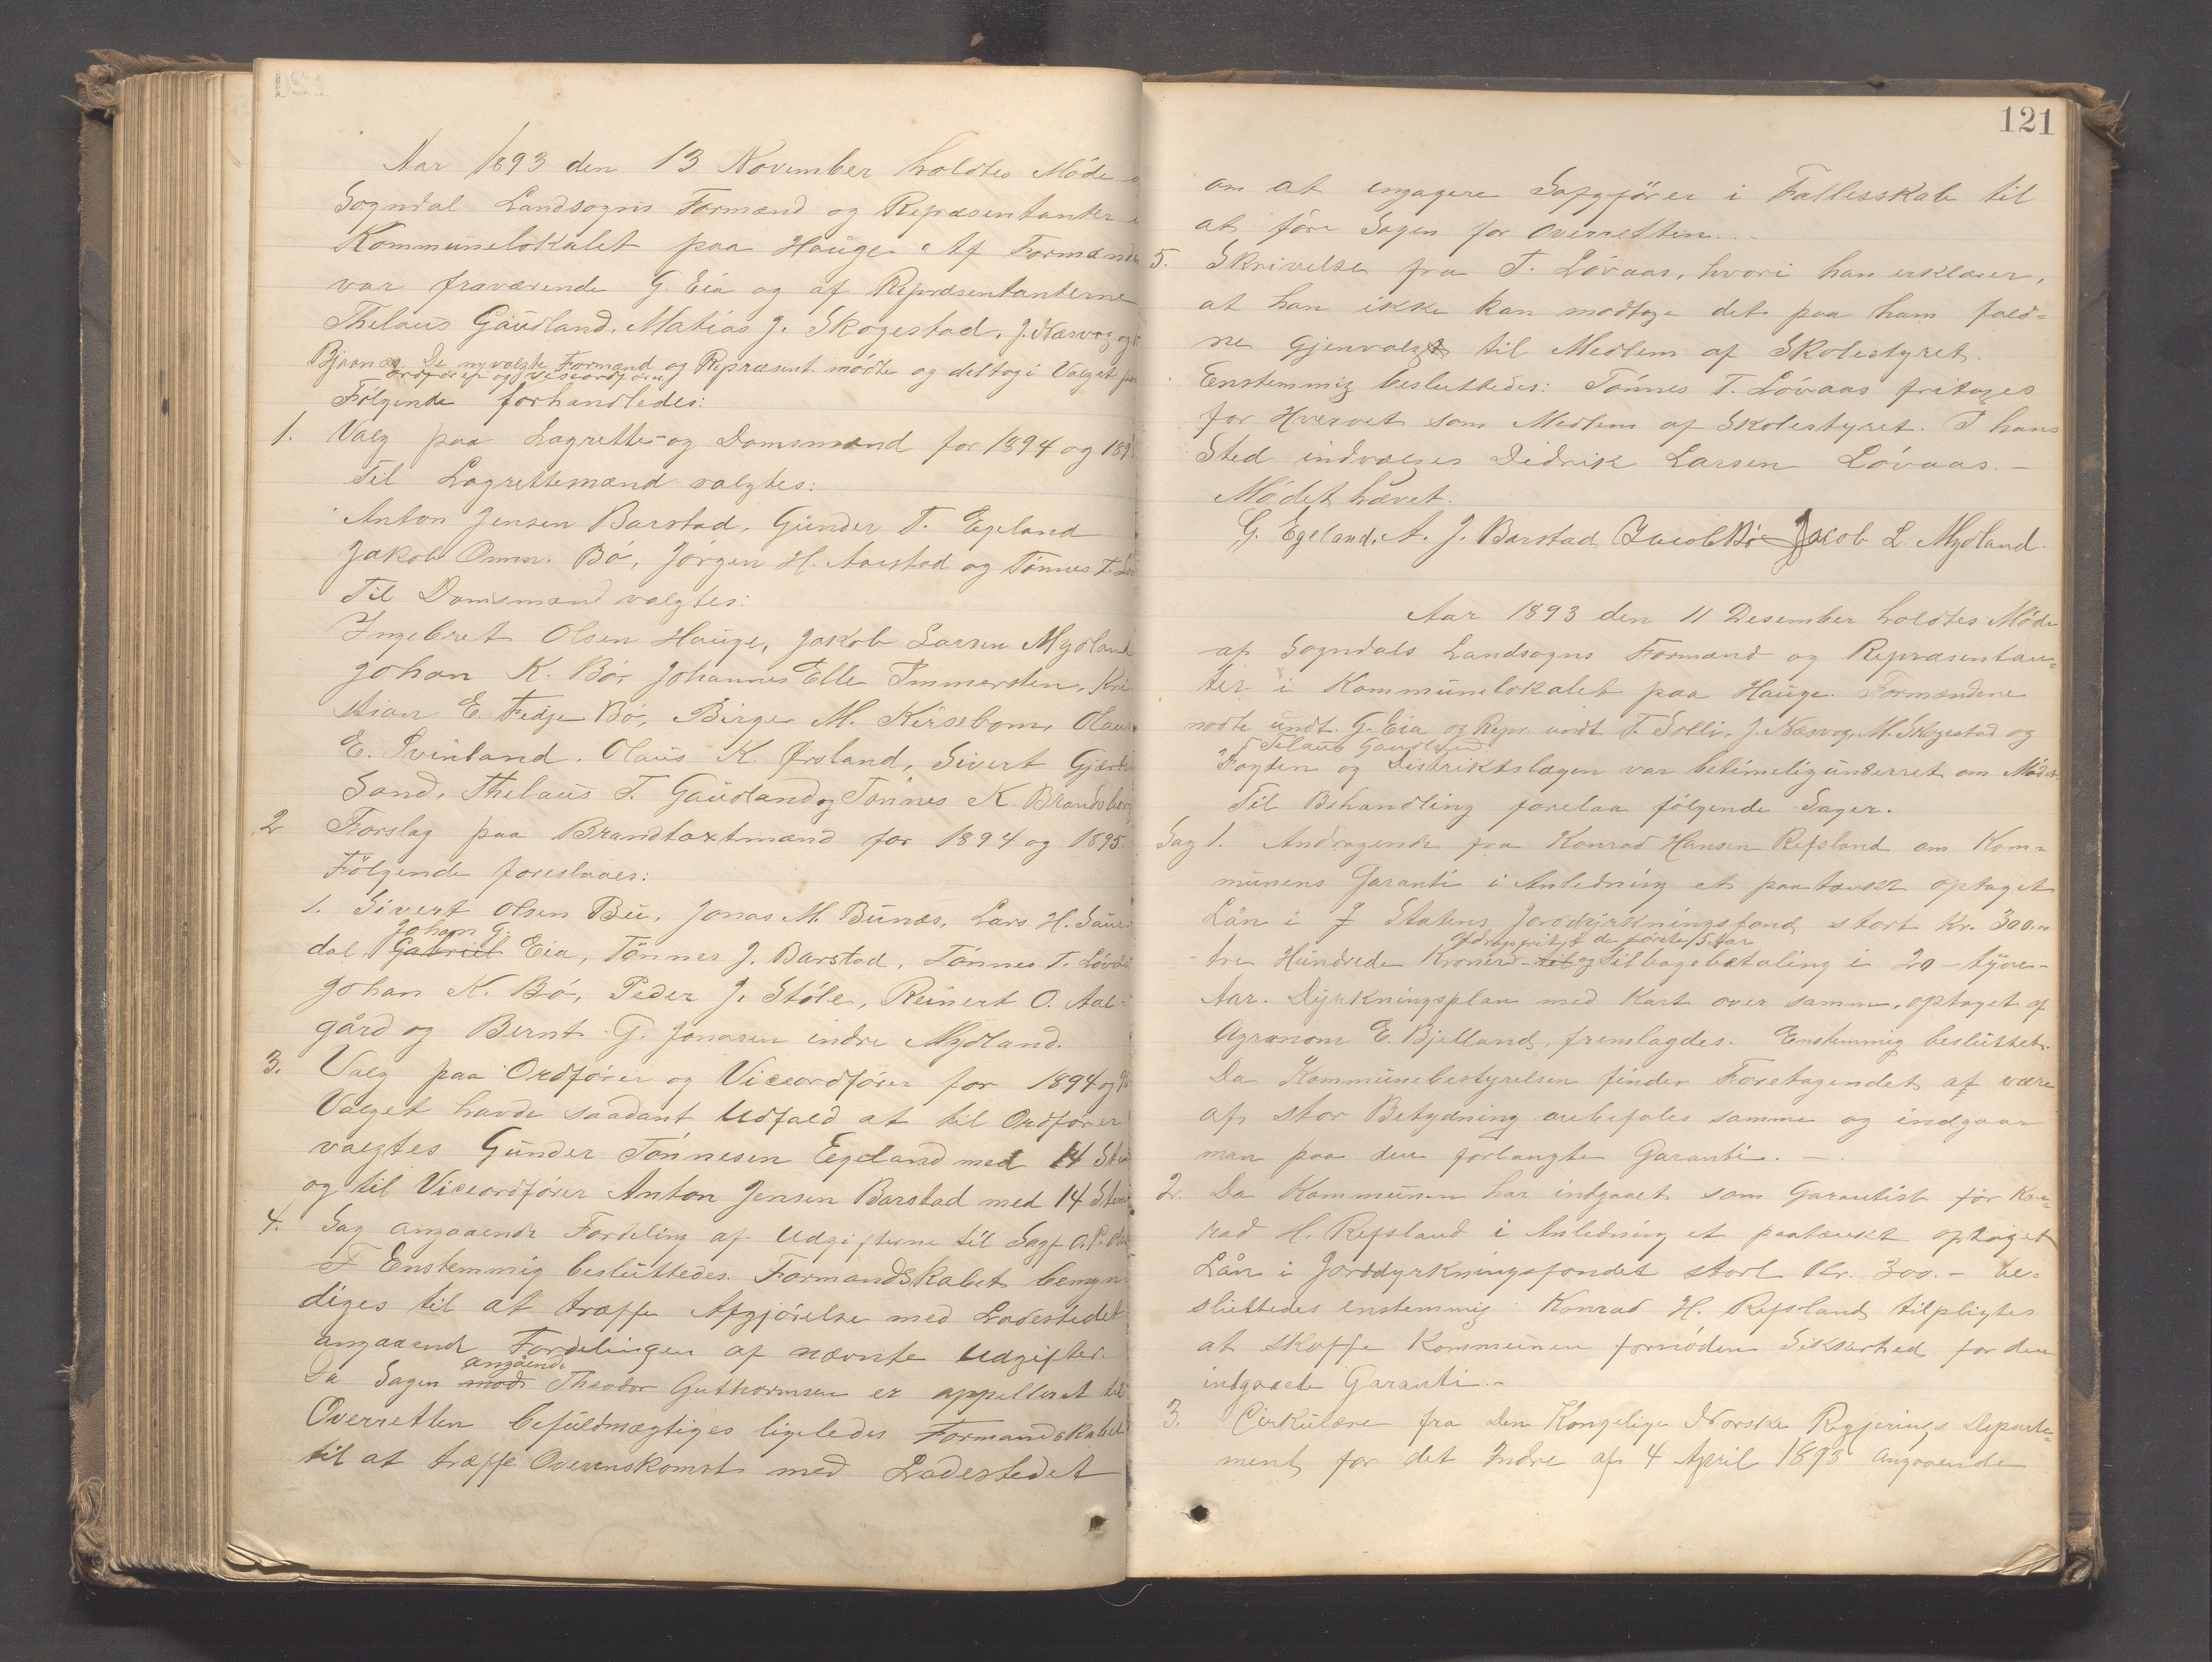 Aar 1893 den 13 November holdtes Møde
Sogndal Landsogns Formænd og Repræsentanter
Kommunelokalet paa Hauge. Af Formænd
var fraværende G. Eia og af Repræsentanterne
Thelaus Gaudland, Matias J. Skogestad, J. Næsvog og
Bjarnæ De nyvalgte Formænd og Repræsent. mødte og deltog i Valget
ordfører og viseordfører
Følgende forhandledes:
1. Valg paa Lagrette- og Domsmænd for 1894 og 189
Til Lagrettemænd valgtes:
Anton Jensen Barstad, Gunder T. Egeland
Jakob Omm. Bø, Jørgen H. Aarstad og Tønnes T. Løv
Til Domsmænd valgtes:
Ingebret Olsen Hauge, Jakob Larsen Mydland
Johan K. Bø, Johannes Elle Immersten, Kri
stian E. Fedje Bø, Birger M. Kirsebom, Olaus
E. Svinland, Olaus K. Ørsland, Sivert Gjert
Sand, Thelaus T. Gaudland og Tønnes K. Brandsberg
2 Forslag paa Brandtaxtmænd for 1894 og 1895
Følgende foreslaaes:
1. Sivert Olsen Bu, Jonas M. Bunæs, Lars H. Saur
Johan G.
dal, Gabriel Eia, Tønnes J. Barstad, Tønnes T. Løvås
Johan K. Bø, Peder J. Støle, Reinert O. Aal-
gård og Bernt G. Jonasen indre Mydland.
3. Valg paa Ordfører og Viceordfører for 1894 og 95
Valget havde saadant Udfald at til Ordfører
valgtes Gunder Tønnesen Egeland med 14 St
og til Viceordfører Anton Jensen Barstad med 14 Stem
4. Sag angaaende Fordeling af Udgifterne til Sagf. O. P.
F Enstemmig besluttedes. Formandskabet bemyn
diges til at træffe Afgjørelse med Ladestedet
angaaende Fordelingen af nævnte Udgifter.
angående
Da Sagen mod Theodor Guthormsen er appelleret til
Overretten befuldmægtiges ligeledes Formandskabet
til at træffe Overenskomst med Ladestedet
121
om at engagere Sagfører i Fallesskab til
at føre Sagen for Overretten.
5. Skrivelse fra T. Løvaas, hvori han erklærer,
at han ikke kan modtage det paa ham fald-
ne Gjenvalg til Medlem af Skolestyret.
Enstemmig besluttedes: Tønnes T. Løvaas fritages
for Hvervet som Medlem af Skolestyret. I hans
Sted indvælges Didrik Larsen Løvaas.-
Mødet hævet.
G. Egeland, A. J. Barstad, Jacob Bø Jacob L. Mydland.
Aar 1893 den 11 Desember holdtes Møde
af Sogndals Landsogns Formænd og Repræsentan-
ter i Kommunelokalet paa Hauge. Formændene
modte undt. G. Eia og Repr. undt. T. Solli, J. Næsvog, M. Skogestad og
Telaus Gaudland.
Fogden og Distriktslægen var betimelig underret om Mødet.
Til Behandling forelaa følgende Sager.
Sag 1. Andragende fra Konrad Hansen Refsland om Kom-
munens Garanti i Anledning et paatænkt optaget
Lån i J Statens Jorddyrkningsfond stort Kr. 300.00
afdragsfrit i de første 5 Aar
- tre Hundrede Kroner - til og tilbagebetaling i 20 - tyve-
Aar. Dyrkningsplan med Kart over samme, optaget af
Agronom E. Bjelland, fremlagdes. Enstemmig besluttet.
Da Kommunebestyrelsen finder Foretagendet af være
af stor Betydning anbefales samme og indgaar
man paa den forlangte Garanti.-
2. Da Kommunen har indgaaet som Garantist for Kon-
rad H. Refsland i Anledning et paatænkt optaget
Lån i Jorddyrkningsfondet stort Kr. 300.- be-
sluttedes enstemmig: Konrad H. Refsland tilpligtes
at skaffe Kommunen fornøden Sikkerhed for den
indgaaede Garanti.-
3. Cirkulære fra den Kongelige Norske Regjerings Departe-
ment for det Indre af 4 April 1893 angaaende